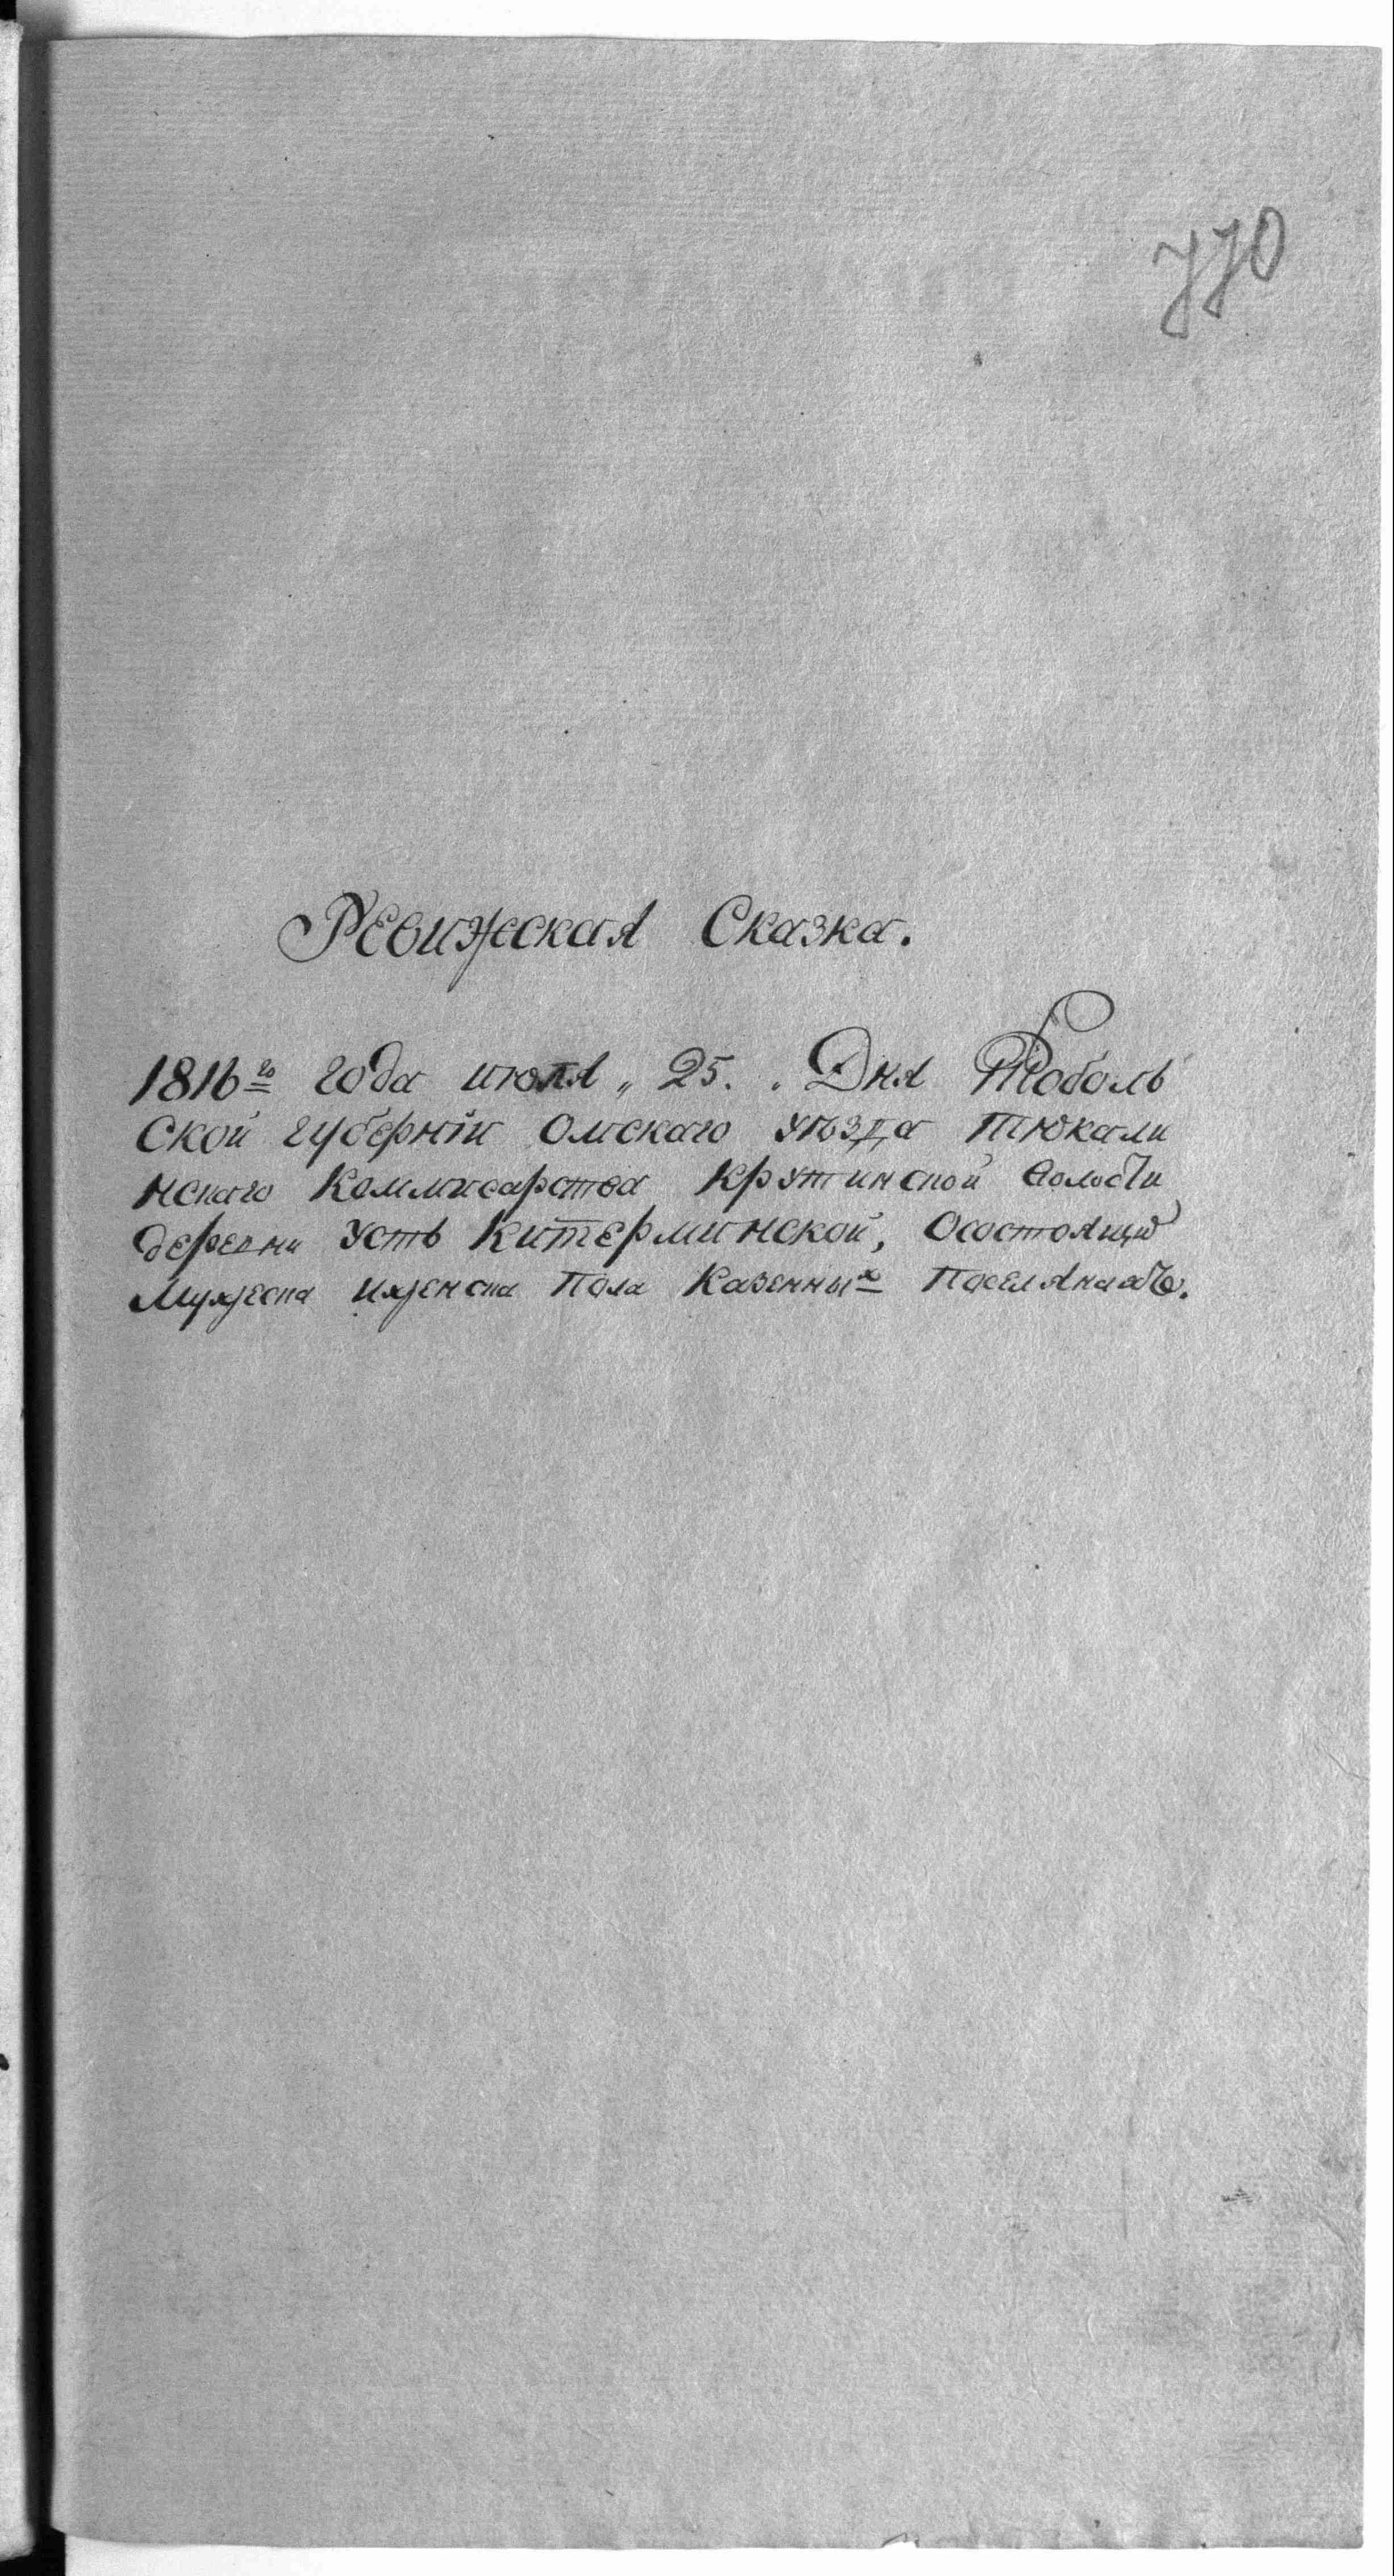 770
Ревижеская Сказка.
1816го года июля „ 25. „ Дня Тоболь
Ской губерніи Омскаго уѣзда Тюкали
нскаго Коммисарства Крутинской волости
деревни Усть Китерминской, Осостоящих
Мужеска иженска Пола Казенных Поселянахъ.